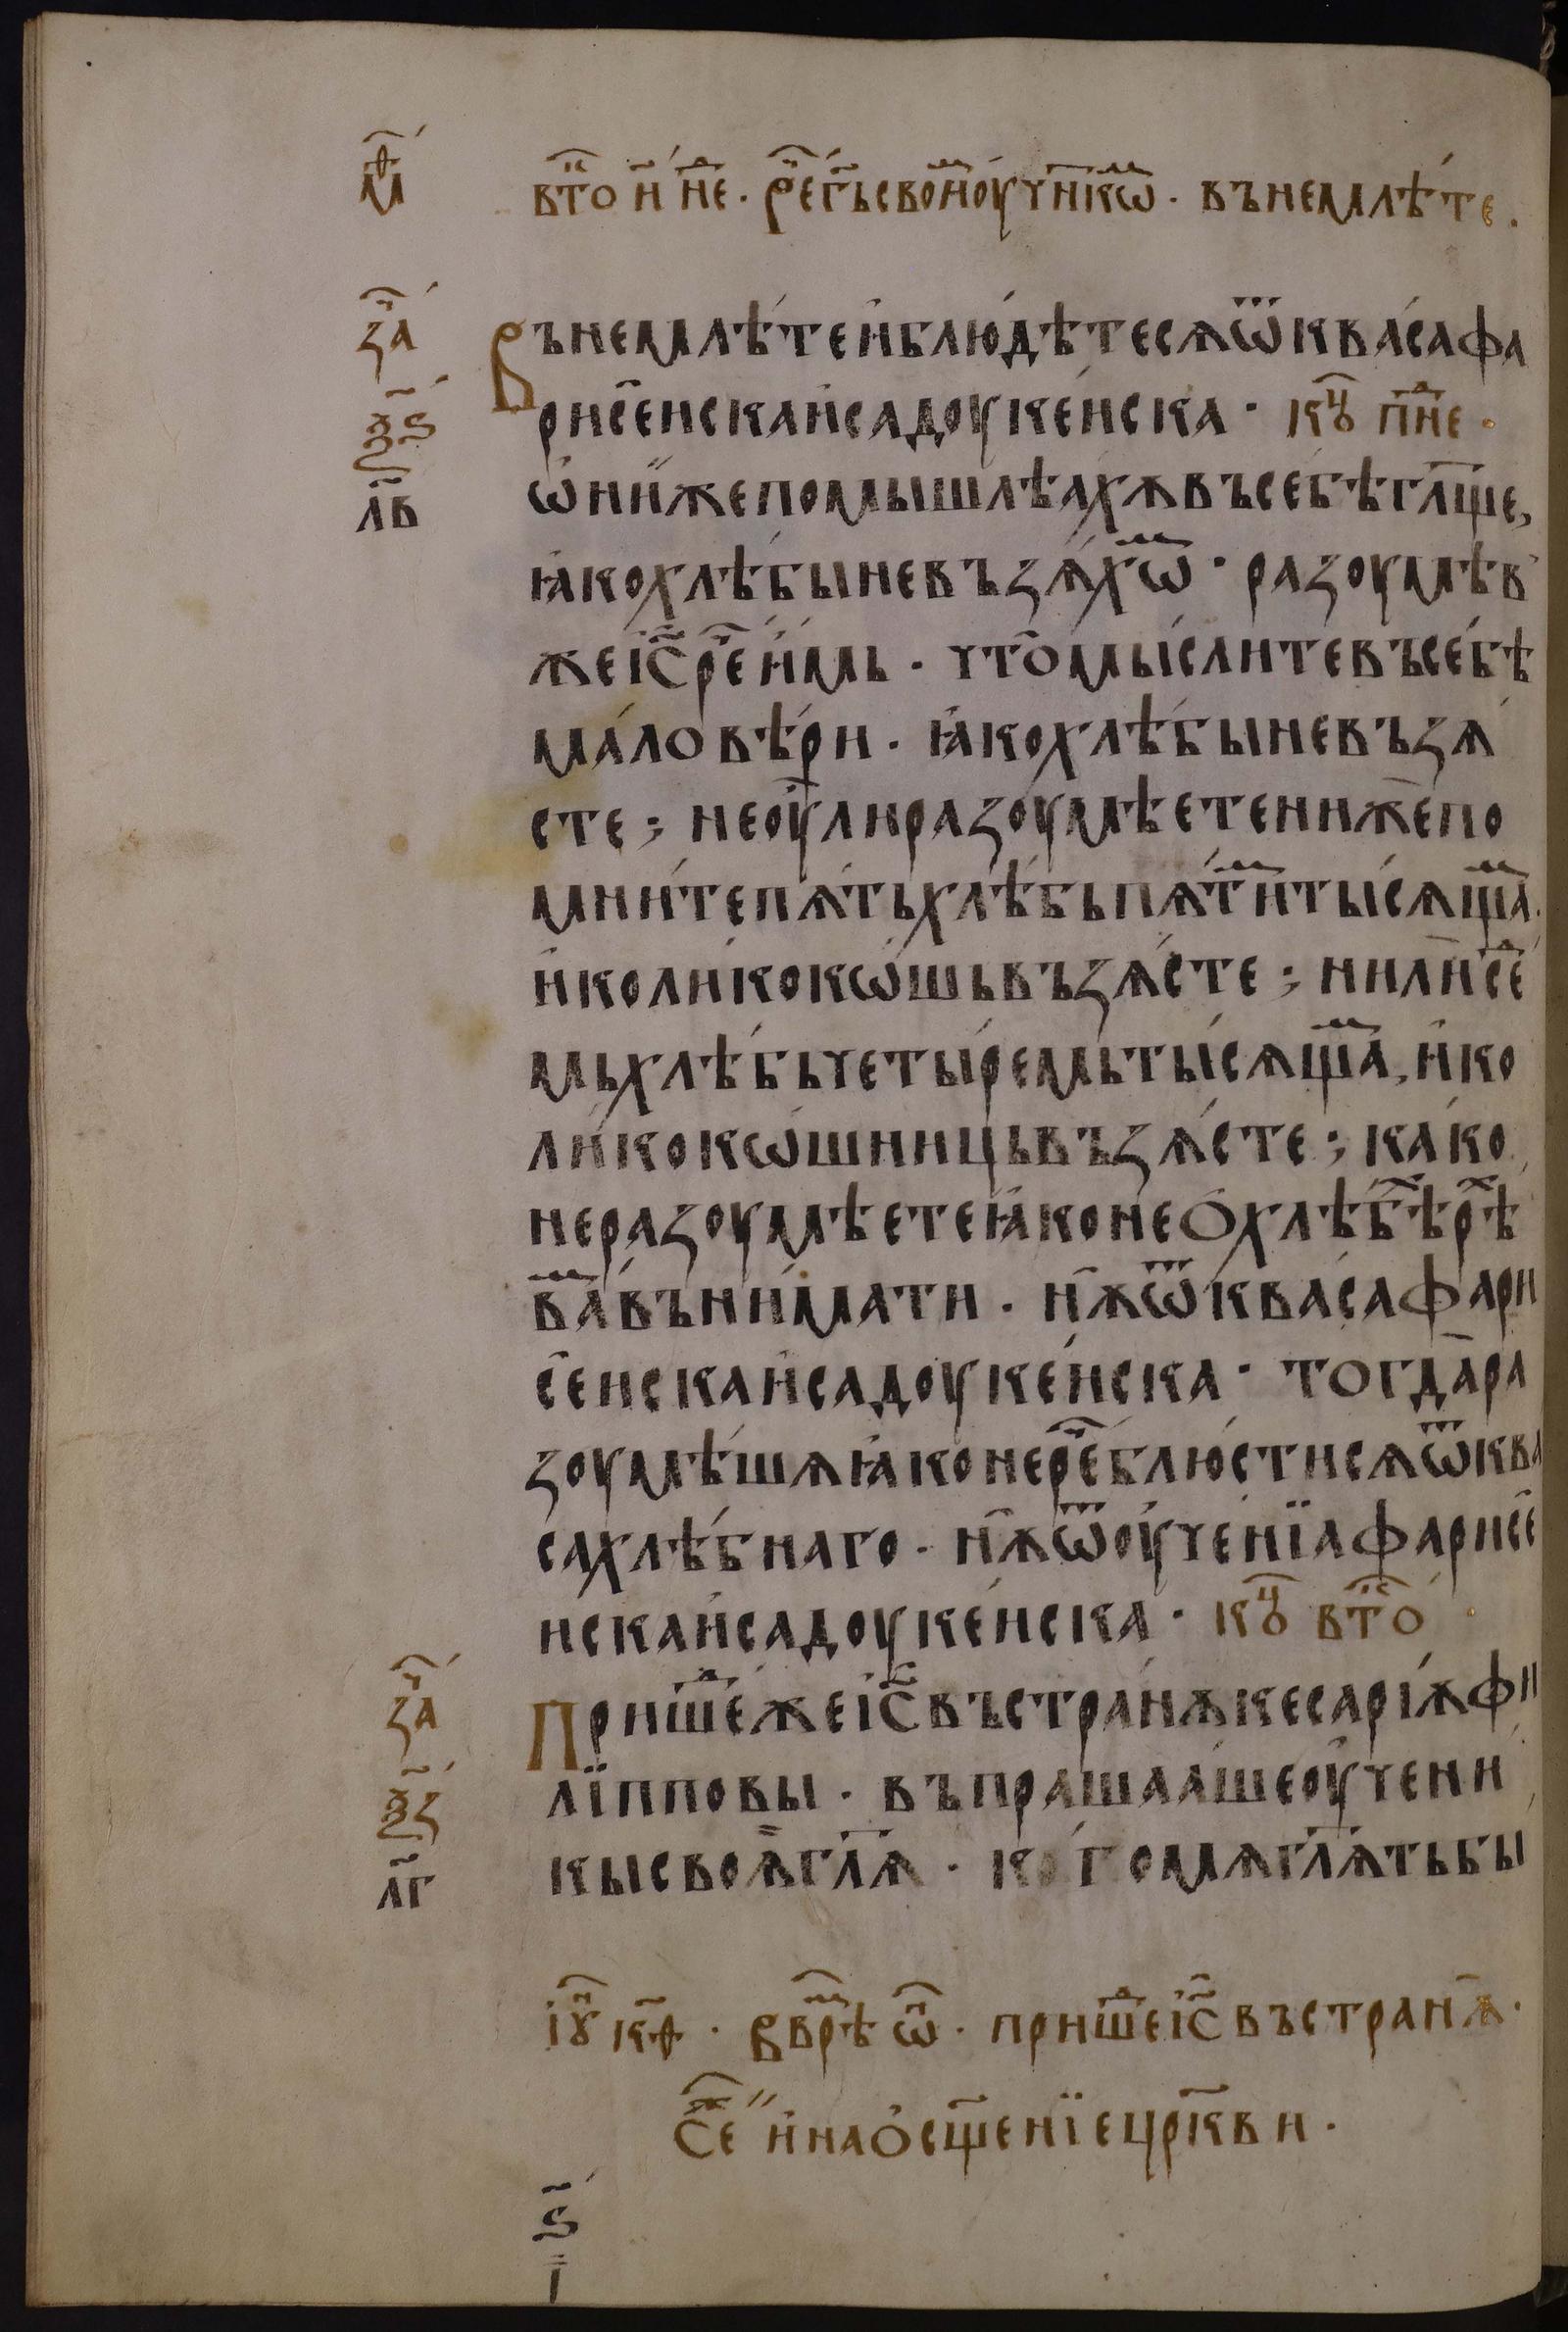 м҃ѳ
вт҃о н҃ нⷣе · рⷱ҇е г҃ь своⷨи оу҆чн҃кѡⷨ · вънемлѣ́те .
за҇ⷱ
Вънемлѣ́те и҆ блюдѣ́тесѧ ѿ ква́са фа
рисе҄иска и҆ садоуке́иска · кѡ҇ⷰ пнⷣе ·
ѯ҃ѕ
л҃в
ѡ҆ни́же помышлѣахѫ въ себѣ гл҃ще,
ꙗ҆ко хлѣ́бы не въз̾ѧ́хѡⷨ · разоумѣв
же і҆с҃ рⷱ҇е и҆́мь · что̀ мы́слите въ себѣ
мало вѣ́ри · ꙗ҆ко хлѣ́бы не възѧ
сте ; не оу҆ ли разоумѣете ниже по
мни́те пѧ́ть хлѣ́бь пѧти́ ты́сѧщаⷨ.
и҆ коли́ко кѡ́шь възѧ́сте ; ни ли сеⷣ
мь хлѣ́бь четы́ремь ты́сѧщаⷨ, и҆ ко
ли́ко кѡ́шниць възѧ́сте ; ка́ко
не разоумѣете ꙗ҆ко не ѻ҆ хлѣ́бѣⷯ рѣⷯ
ваⷨ вънима́ти · нѫ̀ ѿ ква́са фари
се҄иска и҆ садоуке́иска · тогда̀ ра
зоумѣ́шѧ ꙗ҆ко не рⷱ҇е блюсти́сѧ ѿ ква
са хлѣ́бнаго · нѫ̀ ѿ оу҆че́нїа фарисе҄
иска и҆ садоуке́иска · кѡ҇ⷰ вт҃о ·
за҇ⷱ
Пришеⷣ же і҆с҃ въ стра́нѫ кесарі́ѫ фи
ѯ҃з
лі́пповы · въпрашаа́ше оу҆чени
л҃г
кы своѧ̀ гл҃ѧ · кого мѧ гл҃ѧть бы
і҆ꙋⷩ к҃ѳ · в врⷨѣ ѡⷩ · пришеⷣ і҆с҃ въ странѫ̀ ·
сеⷤ и҆ на ѻ҆сщ҃енїе цр҃кви ·
ѕ҃
і